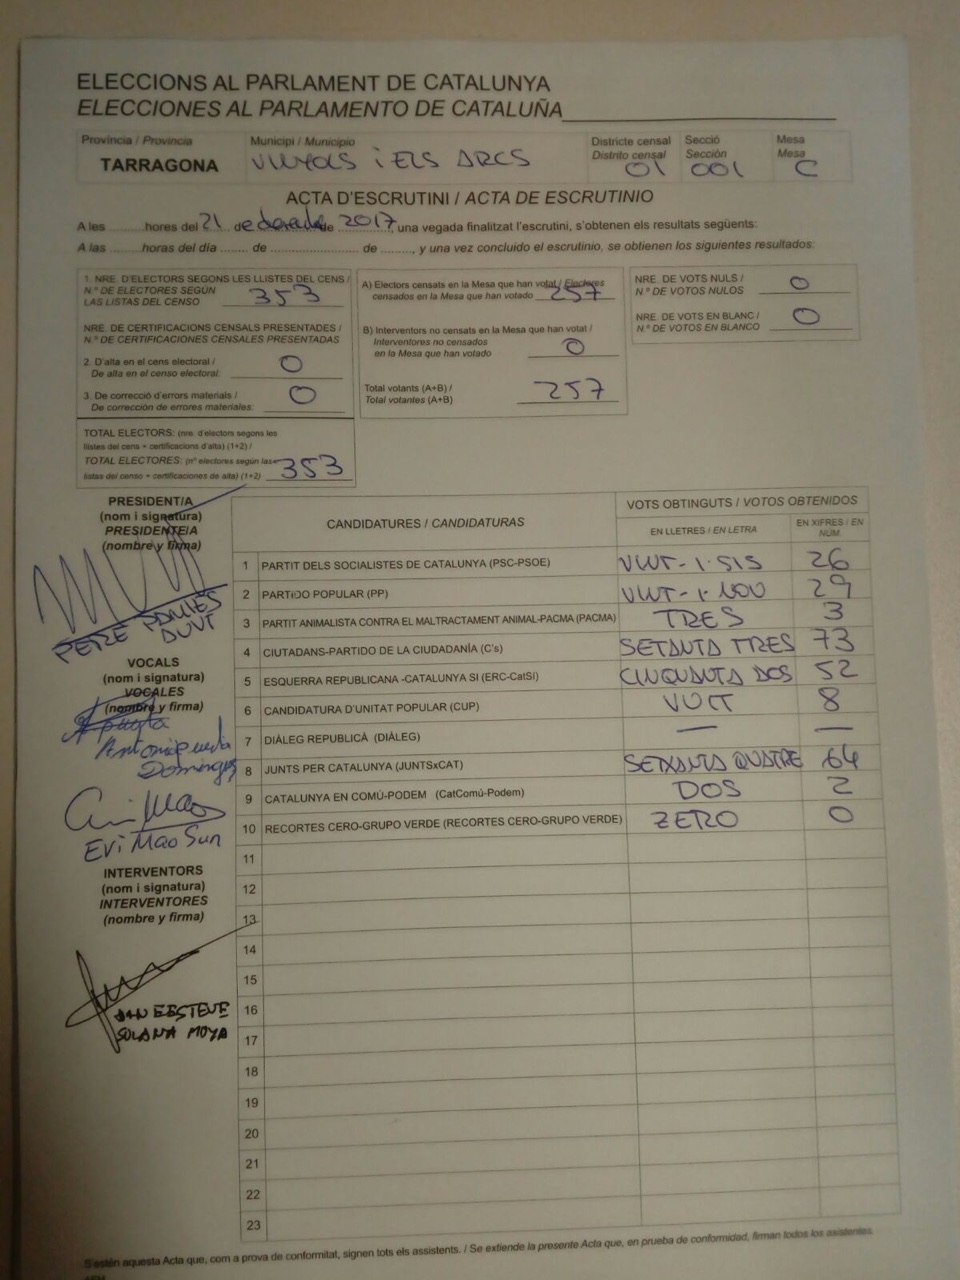 ELECCIONS AL PARLAMENT DE CATALUNYA
ELECCIONES AL PARLAMENTO DE CATALUÑA
Província / Provincia
TARRAGONA
Municipi / Municipio
VINYOLS i ELS ARCS
Districte censal
Distrito censal
01
Secció
Sección
001
Mesa
Mesa
C
ACTA D'ESCRUTINI / ACTA DE ESCRUTINIO
A les ........ hores del 21 de desembre de 2017, una vegada finalitzat l'escrutini, s'obtenen els resultats següents:
A las ....... horas del día ....... de ...................... de ......., y una vez concluido el escrutinio, se obtienen los siguientes resultados:
1. NRE. D'ELECTORS SEGONS LES LLISTES DEL CENS /
N.º DE ELECTORES SEGÚN
LAS LISTAS DEL CENSO 353
NRE. DE CERTIFICACIONS CENSALS PRESENTADES /
N.º DE CERTIFICACIONES CENSALES PRESENTADAS
2. D'alta en el cens electoral /
De alta en el censo electoral: 0
3. De correcció d'errors materials /
De corrección de errores materiales: 0
TOTAL ELECTORS: (nre. d'electors segons les
llistes del cens + certificacions d'alta) (1+2) /
TOTAL ELECTORES: (nº electores según las
listas del censo + certificaciones de alta) (1+2) 353
A) Electors censats en la Mesa que han votat / Electores
censados en la Mesa que han votado 257
B) Interventors no censats en la Mesa que han votat /
Interventores no censados
en la Mesa que han votado 0
Total votants (A+B) /
Total votantes (A+B) 257
NRE. DE VOTS NULS /
N.º DE VOTOS NULOS 0
NRE. DE VOTS EN BLANC /
N.º DE VOTOS EN BLANCO 0
PRESIDENT/A
(nom i signatura)
PRESIDENTE/A
(nombre y firma)
PERE
VOCALS
(nom i signatura)
VOCALES
(nombre y firma)
Antonia
Dominguez
Evi Mao Sun
INTERVENTORS
(nom i signatura)
INTERVENTORES
(nombre y firma)
ESTEVE
SOLANA MOYA
CANDIDATURES / CANDIDATURAS
VOTS OBTINGUTS / VOTOS OBTENIDOS
EN LLETRES / EN LETRA
EN XIFRES / EN NÚM
1 PARTIT DELS SOCIALISTES DE CATALUNYA (PSC-PSOE) VINT-I-SIS 26
2 PARTIDO POPULAR (PP) VINT-I-NOU 29
3 PARTIT ANIMALISTA CONTRA EL MALTRACTAMENT ANIMAL-PACMA (PACMA) TRES 3
4 CIUTADANS-PARTIDO DE LA CIUDADANÍA (C's) SETANTA TRES 73
5 ESQUERRA REPUBLICANA -CATALUNYA SI (ERC-CatSI) CINQUANTA DOS 52
6 CANDIDATURA D'UNITAT POPULAR (CUP) VUIT 8
7 DIÀLEG REPUBLICÀ (DIÀLEG) — —
8 JUNTS PER CATALUNYA (JUNTSxCAT) SEIXANTA QUATRE 64
9 CATALUNYA EN COMÚ-PODEM (CatComú-Podem) DOS 2
10 RECORTES CERO-GRUPO VERDE (RECORTES CERO-GRUPO VERDE) ZERO 0
11
12
13
14
15
16
17
18
19
20
21
22
23
S'estén aquesta Acta que, com a prova de conformitat, signen tots els assistents. / Se extiende la presente Acta que, en prueba de conformidad, firman todos los asistentes.